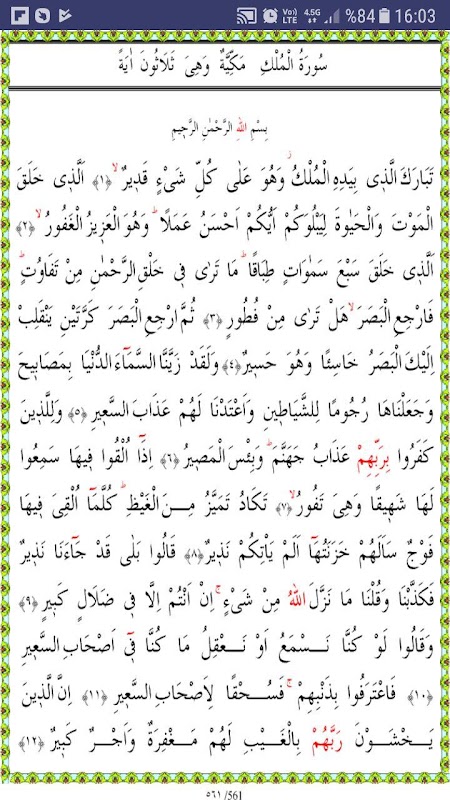 Vo)) LTE 4.5G %84 16:03
سُورَةُ الْمُلْكِ مَكِّيَّةٌ وَهِىَ ثَلَاثُونَ اٰيَةً
بِسْمِ اللهِ الرَّحْمٰنِ الرَّحٖيمِ
تَبَارَكَ الَّذٖى بِيَدِهِ الْمُلْكُ ۘ وَهُوَ عَلٰى كُلِّ شَىْءٍ قَدٖيرٌ ۙ ﴿١﴾ اَلَّذٖى خَلَقَ
الْمَوْتَ وَالْحَيٰوةَ لِيَبْلُوَكُمْ اَيُّكُمْ اَحْسَنُ عَمَلًا ؕ وَهُوَ الْعَزٖيزُ الْغَفُورُ ۙ ﴿٢﴾
اَلَّذٖى خَلَقَ سَبْعَ سَمٰوَاتٍ طِبَاقًا ؕ مَا تَرٰى فٖى خَلْقِ الرَّحْمٰنِ مِنْ تَفَاوُتٍ ؕ
فَارْجِعِ الْبَصَرَ ۙ هَلْ تَرٰى مِنْ فُطُورٍ ﴿٣﴾ ثُمَّ ارْجِعِ الْبَصَرَ كَرَّتَيْنِ يَنْقَلِبْ
اِلَيْكَ الْبَصَرُ خَاسِئًا وَهُوَ حَسٖيرٌ ﴿٤﴾ وَلَقَدْ زَيَّنَّا السَّمَٓاءَ الدُّنْيَا بِمَصَابٖيحَ
وَجَعَلْنَاهَا رُجُومًا لِلشَّيَاطٖينِ وَاَعْتَدْنَا لَهُمْ عَذَابَ السَّعٖيرِ ﴿٥﴾ وَلِلَّذٖينَ
كَفَرُوا بِرَبِّهِمْ عَذَابُ جَهَنَّمَ ؕ وَبِئْسَ الْمَصٖيرُ ﴿٦﴾ اِذَٓا اُلْقُوا فٖيهَا سَمِعُوا
لَهَا شَهٖيقًا وَهِىَ تَفُورُ ۙ ﴿٧﴾ تَكَادُ تَمَيَّزُ مِنَ الْغَيْظِ ؕ كُلَّمَٓا اُلْقِىَ فٖيهَا
فَوْجٌ سَاَلَهُمْ خَزَنَتُهَٓا اَلَمْ يَاْتِكُمْ نَذٖيرٌ ﴿٨﴾ قَالُوا بَلٰى قَدْ جَٓاءَنَا نَذٖيرٌ
فَكَذَّبْنَا وَقُلْنَا مَا نَزَّلَ اللهُ مِنْ شَىْءٍ ۚ اِنْ اَنْتُمْ اِلَّا فٖى ضَلَالٍ كَبٖيرٍ ﴿٩﴾
وَقَالُوا لَوْ كُنَّا نَسْمَعُ اَوْ نَعْقِلُ مَا كُنَّا فٖٓى اَصْحَابِ السَّعٖيرِ
﴿١٠﴾ فَاعْتَرَفُوا بِذَنْبِهِمْ ۚ فَسُحْقًا لِاَصْحَابِ السَّعٖيرِ ﴿١١﴾ اِنَّ الَّذٖينَ
يَخْشَوْنَ رَبَّهُمْ بِالْغَيْبِ لَهُمْ مَغْفِرَةٌ وَاَجْرٌ كَبٖيرٌ ﴿١٢﴾
٥٦١ /561